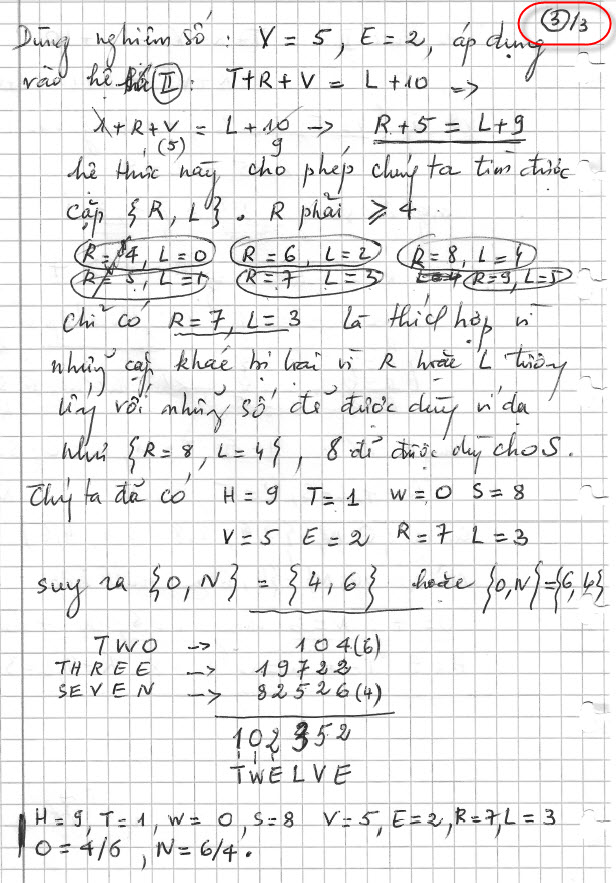 3/3
Dùng nghiệm số : V = 5, E = 2, áp dụng
vào hệ (II) : T+R+V = L+10 ->
1+R+V = L+10 -> R+5 = L+9
(5) 9
hệ thức này cho phép chúng ta tìm được
cặp {R, L}. R phải ≥ 4
R = 4, L = 0 R = 6, L = 2 R = 8, L = 4
R = 5, L = 1 R = 7 L = 3 R = 9, L = 5
Chỉ có R = 7, L = 3 là thích hợp vì
những cặp khác bị loại vì R hoặc L tương
ứng với những số đã được dùng ví dụ
như {R = 8, L = 4}, 8 đã được dùng cho S.
Chúng ta đã có H = 9 T = 1 W = 0 S = 8
V = 5 E = 2 R = 7 L = 3
suy ra {O, N} = {4, 6} hoặc {O, N} = {6, 4}
TWO -> 104(6)
THREE -> 19722
SEVEN -> 82526(4)
102352
TWELVE
H = 9, T = 1, W = 0, S = 8 V = 5, E = 2, R = 7, L = 3
O = 4/6, N = 6/4.